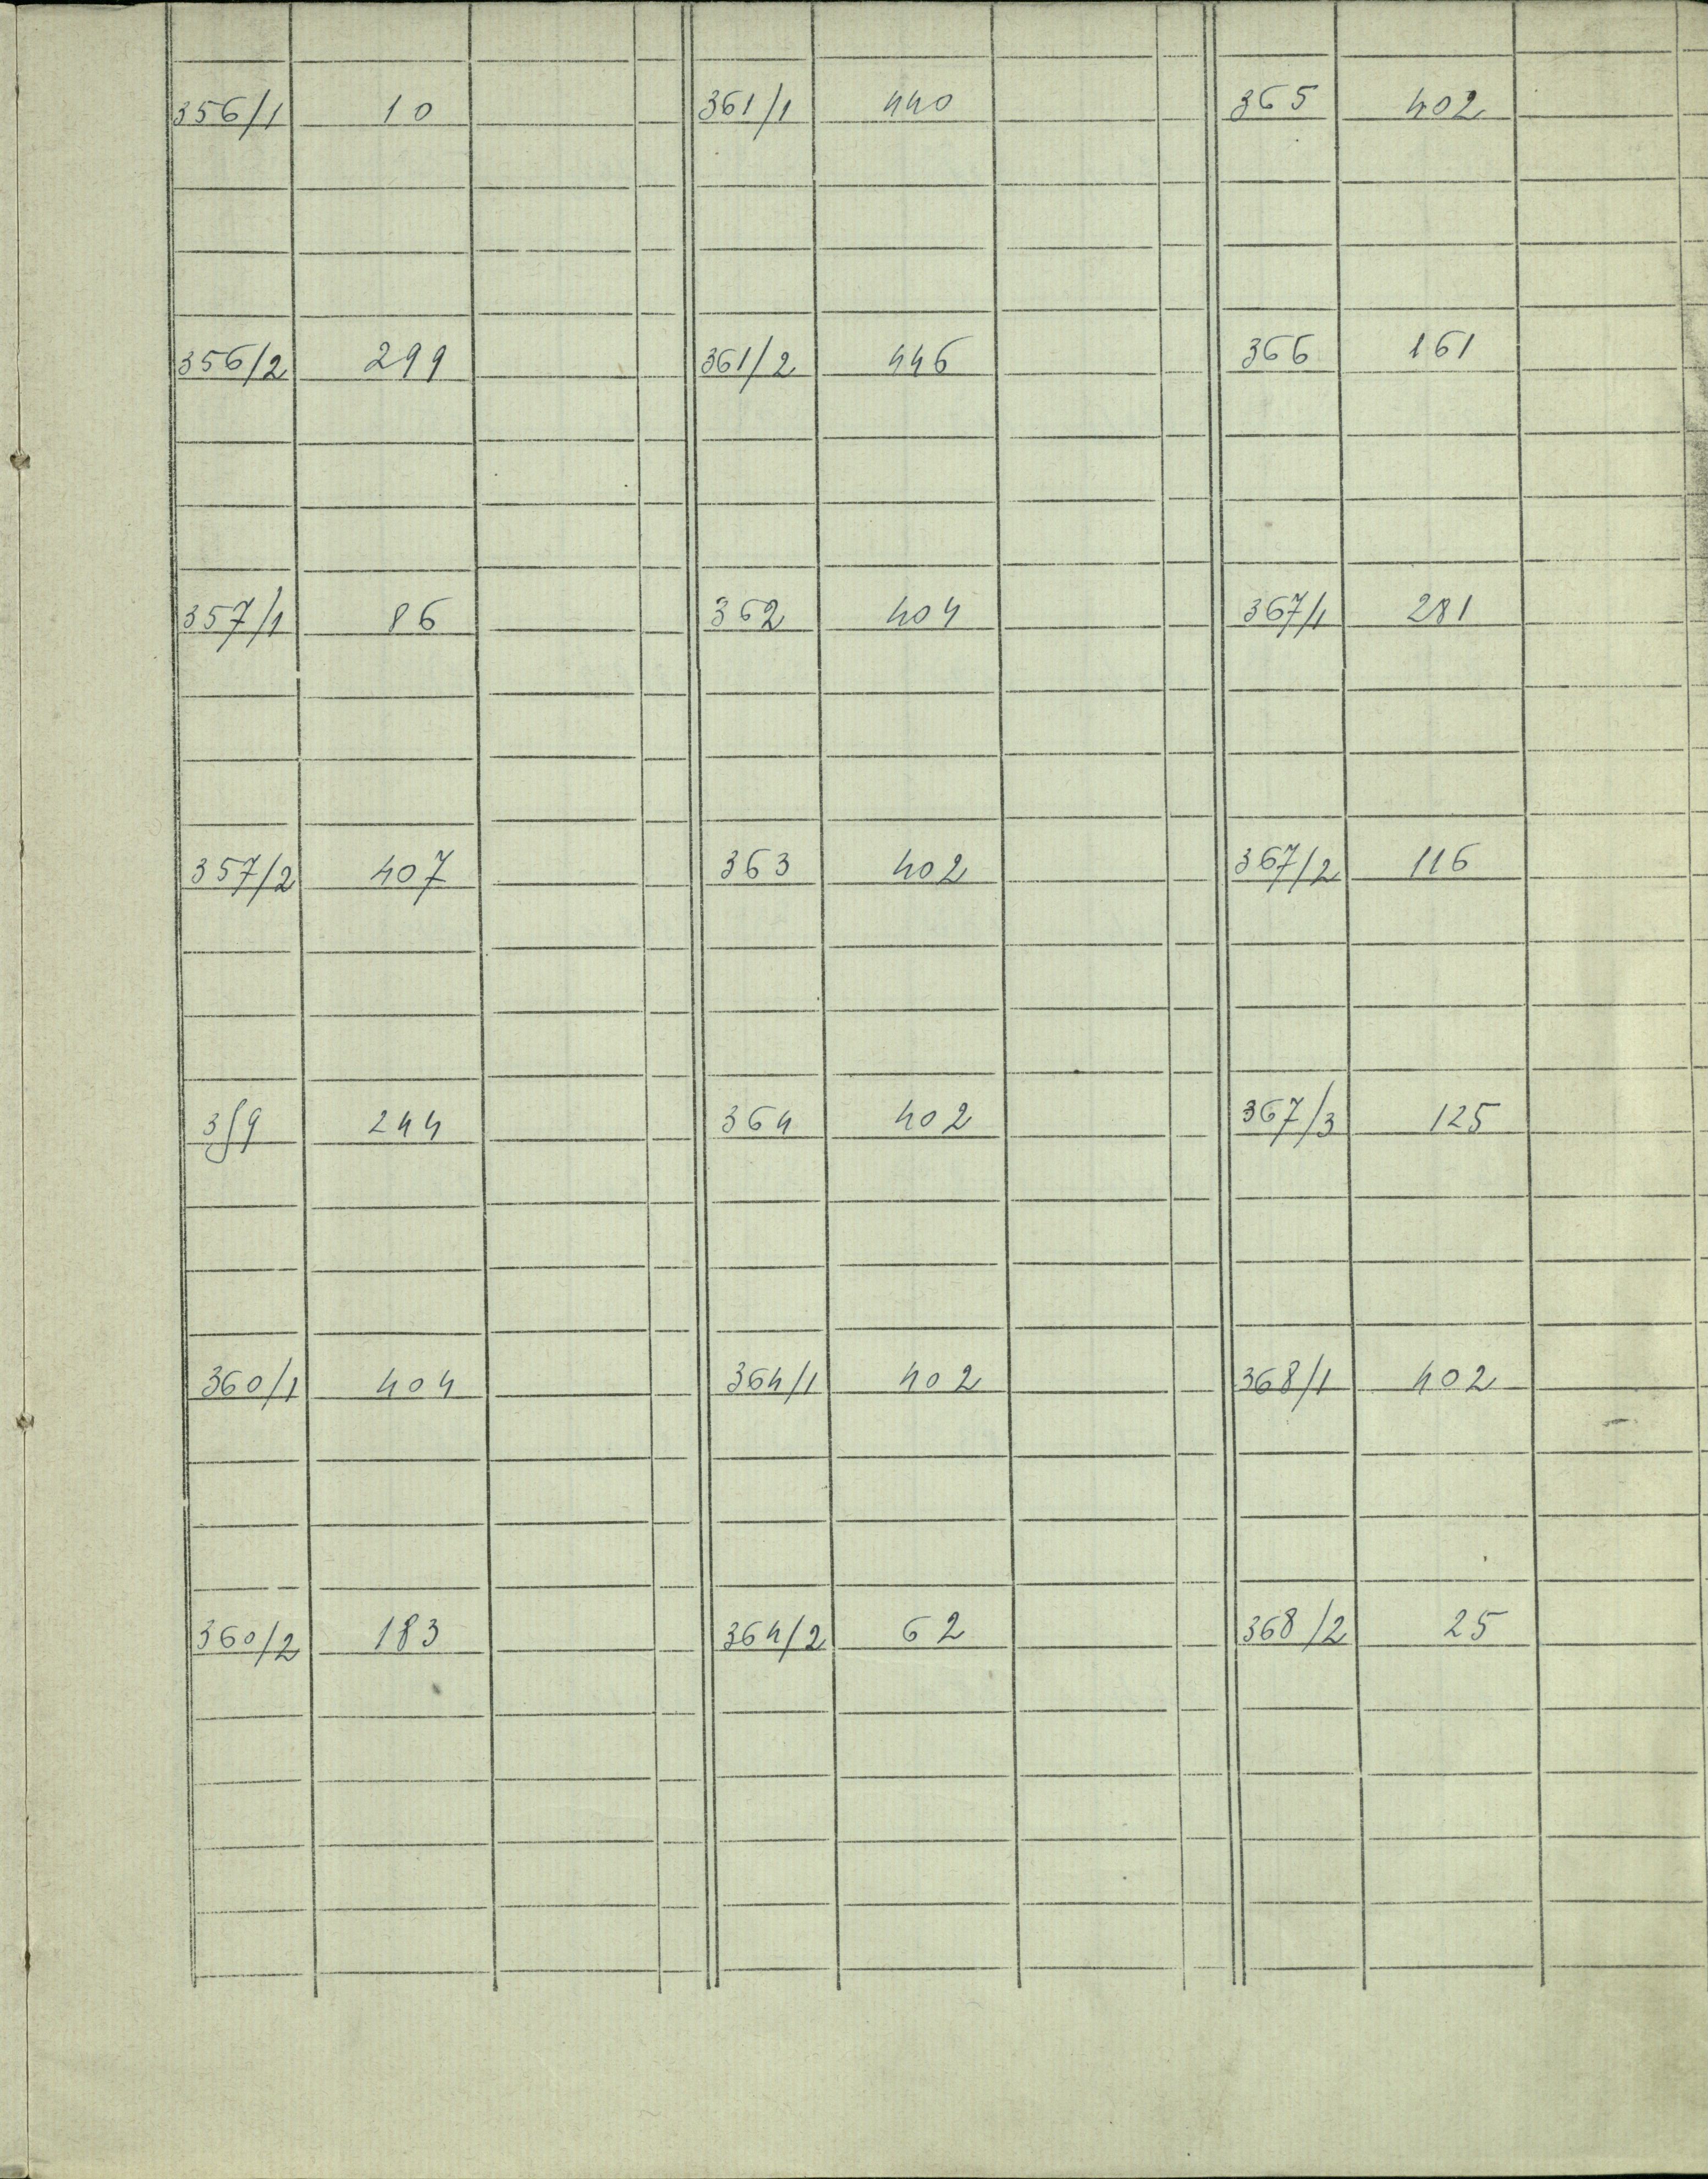 356/1 10 361/1 440 365 402
356/2 299 361/2 446 366 161
357/1 86 362 404 367/1 281
357/2 407 363 402 367/2 116
359 244 364 402 367/3 125
360/1 404 364/1 402 368/1 402
360/2 183 364/2 62 368/2 25